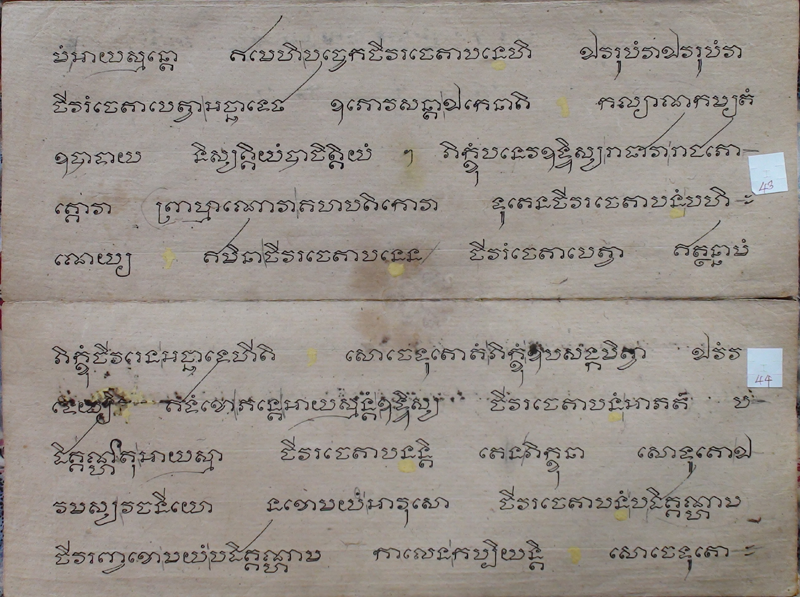 មំអាយស្មន្តោ ឥមេហិបច្ចេកចីវរចេតាបនេហិ ឯវរូបំវាឯវរូបំវា
ចីវរំចេតាបេត្វាអច្ឆាទេថ ឧភោវសន្តាឯកេនាតិ ។ កល្យាណកម្យតំ
ឧបាទាយ និស្សគ្គិយំបាចិត្តិយំ ៗ ភិក្ខុំបនេវឧទ្ទិស្សរាជាវារាជភោ
គ្គោវា ព្រាហ្មណោវាគហបតិកោវា ទូតេនចីវរចេតាបន្នំបហិ
ណេយ្យ ។ ឥមិនាចីវរចេតាបនេន ចីវរំចេតាបេត្វា ឥត្ថន្នាមំ
43
ភិក្ខុំចីវរេនអច្ឆាទេហីតិ ។ សោចេទូតោតំភិក្ខុំឧបសង្កមិត្វា ឯវំវ
ទេយ្យ ឥទំខោភន្តេអាយស្មន្តំឧទ្ទិស្ស ចីវរចេតាបន្នំអាភតំ ប
ដិគ្គណ្ហាតុអាយស្មា ចីវរចេតាបន្នន្តិ តេនភិក្ខុនា សោទូតោឯ
វមស្សវចនីយោ នខោមយំអាវុសោ ចីវរចេតាបន្នំបដិគ្គណ្ហាម
ចីវរញ្ចខោមយំបដិគ្គណ្ហាម កាលេនកប្បិយន្តិ ។ សោចេទូតោ
44